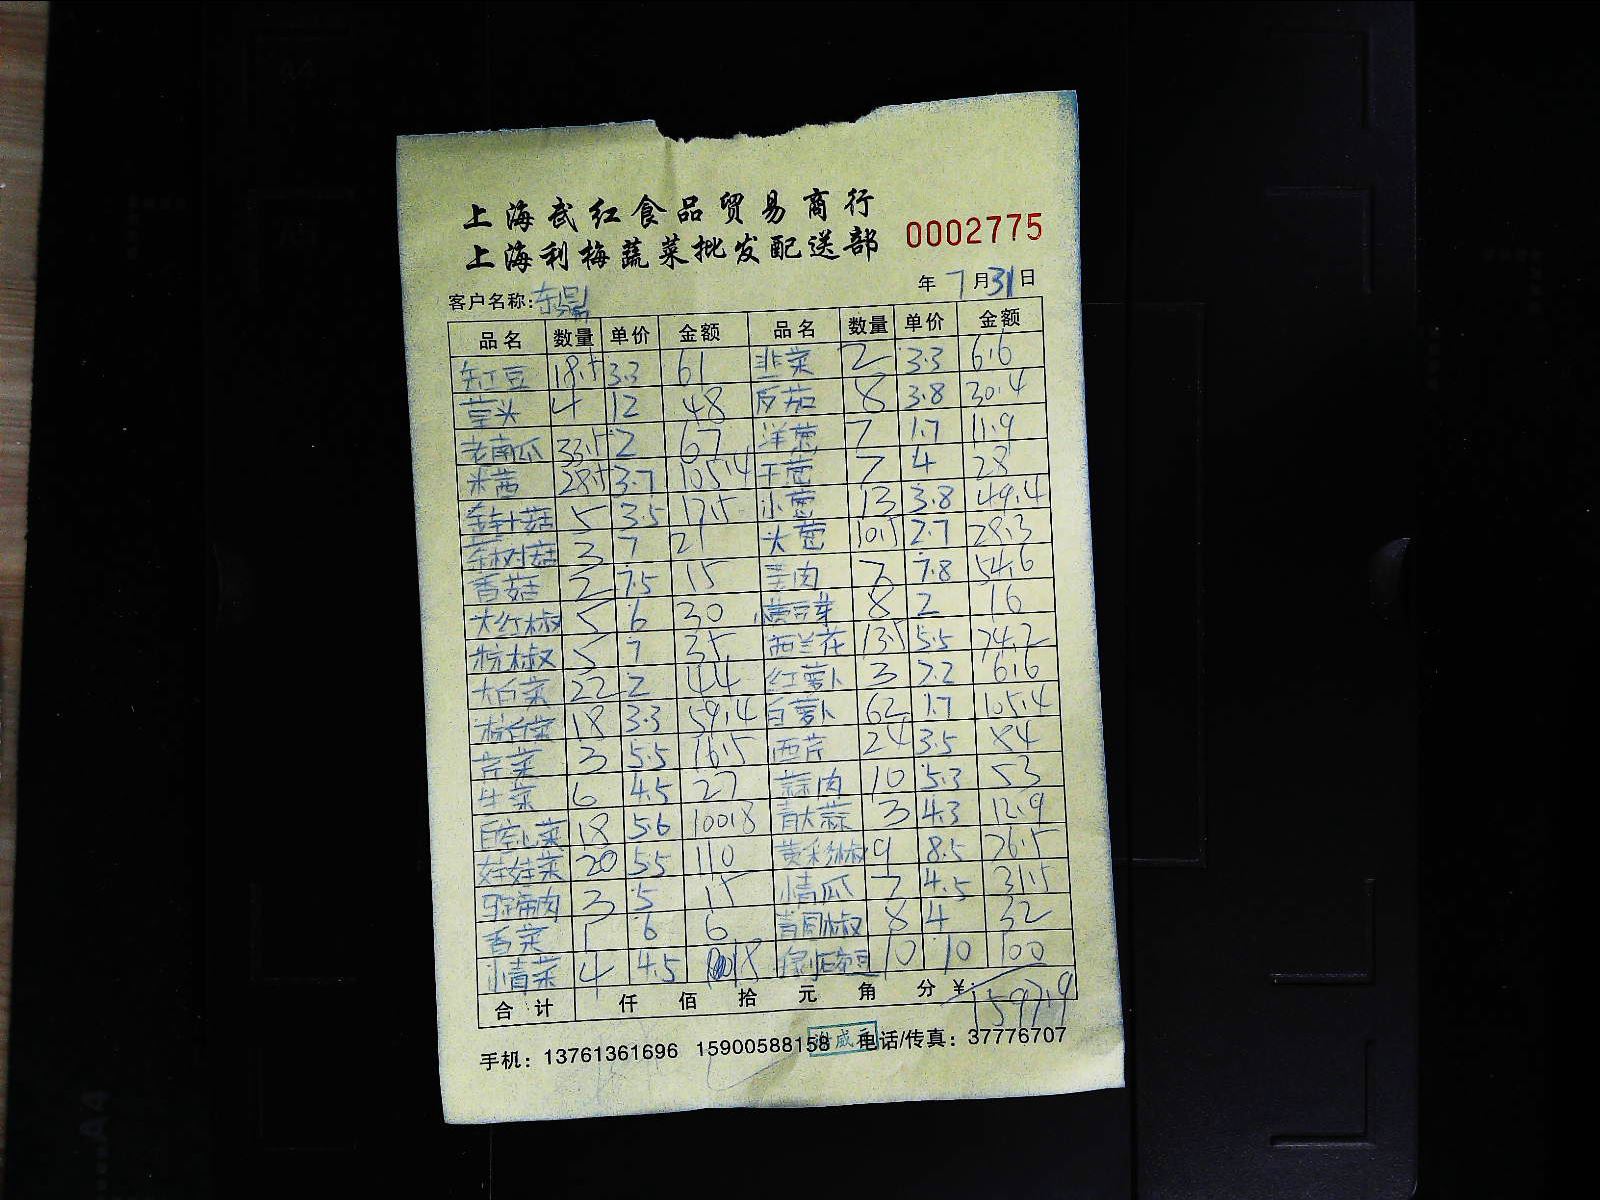 上海武红食品贸易商行
上海利梅蔬菜批发配送部 0002775
客户名称: 年 7 月 31 日
品名 数量 单价 金额 品名 数量 单价 金额
缸豆 18.5 3.3 61 韭菜 2 3.3 6.6
草头 4 12 48 反茄 8 3.8 30.4
老南瓜 33.5 2 67 洋葱 7 1.7 11.9
米茜 28.5 3.7 105.4 干葱 7 4 28
金针菇 5 3.5 17.5 小葱 13 3.8 49.4
茶树菇 3 7 21 大葱 10.5 2.7 28.3
香菇 2 7.5 15 姜肉 7 7.8 54.6
大红椒 5 6 30 黄豆芽 8 2 16
杭椒 5 7 35 西兰花 13.5 5.5 74.2
大白菜 22 2 44 红萝卜 3 2.2 6.6
杭白菜 18 3.3 59.4 白萝卜 62 1.7 105.4
芹菜 3 5.5 16.5 西芹 24 3.5 84
生菜 6 4.5 27 蒜肉 10 5.3 53
白空心菜 18 5.6 100.8 青大蒜 3 4.3 12.9
娃娃菜 20 5.5 110 黄彩椒 9 8.5 76.5
3 5 15 小青瓜 7 4.5 31.5
香菜 1 6 6 青圆椒 8 4 32
小青菜 4 4.5 18 10 10 100
合计 仟 佰 拾 元 角 分 ¥: 1597.9
手机: 13761361696 15900588158 电话/传真: 37776707